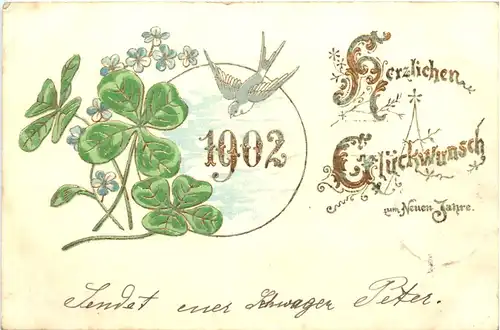 1902
Herzlichen
Glückwunsch
zum Neuen Jahre.
Sendet euer Schwager Peter.